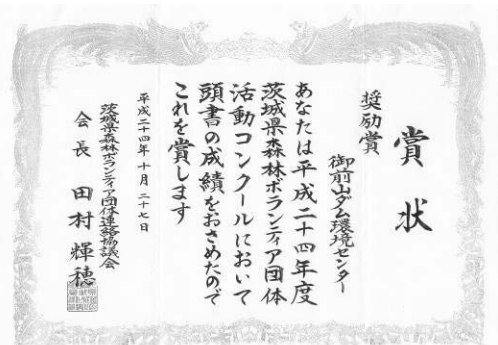 賞状
奨励賞
御前山ダム環境センター
あなたは平成二十四年度
茨城県森林ボランティア団体
活動コンクールにおいて
頭書の成績をおさめたので
これを賞します
平成二十四年十月二十七日
茨城県森林ボランティア団体連絡協議会
会長 田村輝穂